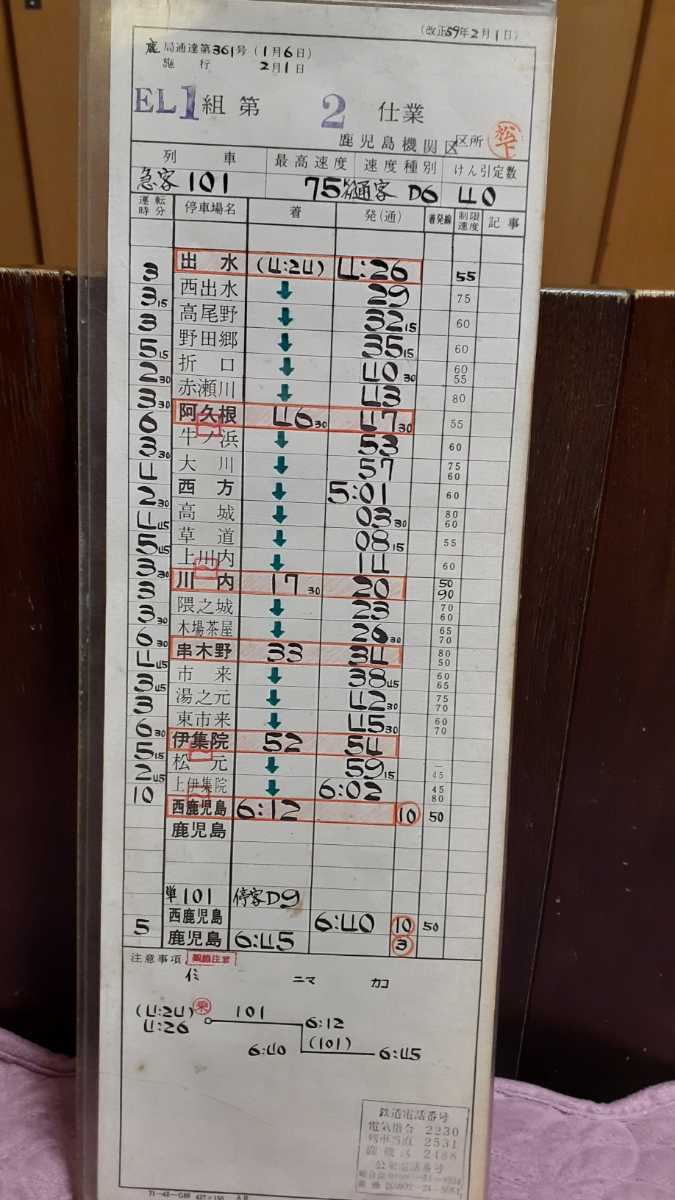 (改正59年2月1日)
鹿局通達第361号(1月6日)
施行 2月1日
EL1組第 2 仕業
鹿児島機関区 区所
松下
列車 最高速度 速度種別 けん引定数
急客101 75 通客D6 40
運転時分 停車場名 着 発(通) 着発線 制限速度 記事
出水 (4:24) 4:26 55
3 西出水 ↓ 29 75
3 15 高尾野 ↓ 32 15 60
3 野田郷 ↓ 35 15 60
5 15 折口 ↓ 40 30 60 55
2 30 赤瀬川 ↓ 43 80
3 30 阿久根 46 30 47 30 55
6 牛ノ浜 ↓ 53 60
3 30 大川 ↓ 57 75 60
4 西方 ↓ 5:01 60
2 30 高城 ↓ 03 30 80 60
4 45 草道 ↓ 08 15 55
5 45 上川内 ↓ 14 60
3 30 川内 17 30 20 50 90
3 隈之城 ↓ 23 70 60
3 30 木場茶屋 ↓ 26 30 65 70
6 30 串木野 33 34 80 50
4 45 市来 ↓ 38 45 60 65
3 45 湯之元 ↓ 42 30 75 70
3 東市来 ↓ 45 30 60 70
6 30 伊集院 52 54
5 15 松元 ↓ 59 15 45
2 45 上伊集院 ↓ 6:02 45 80
10 西鹿児島 6:12 10 50
鹿児島
単101 停客D9
西鹿児島 6:40 10 50
5 鹿児島 6:45 3
注意事項
イミ ニマ カコ
(4:24) 乗 101 6:12
4:26
6:40 (101) 6:45
鉄道電話番号
電気指令 2230
列車当直 2531
2488
公衆電話番号